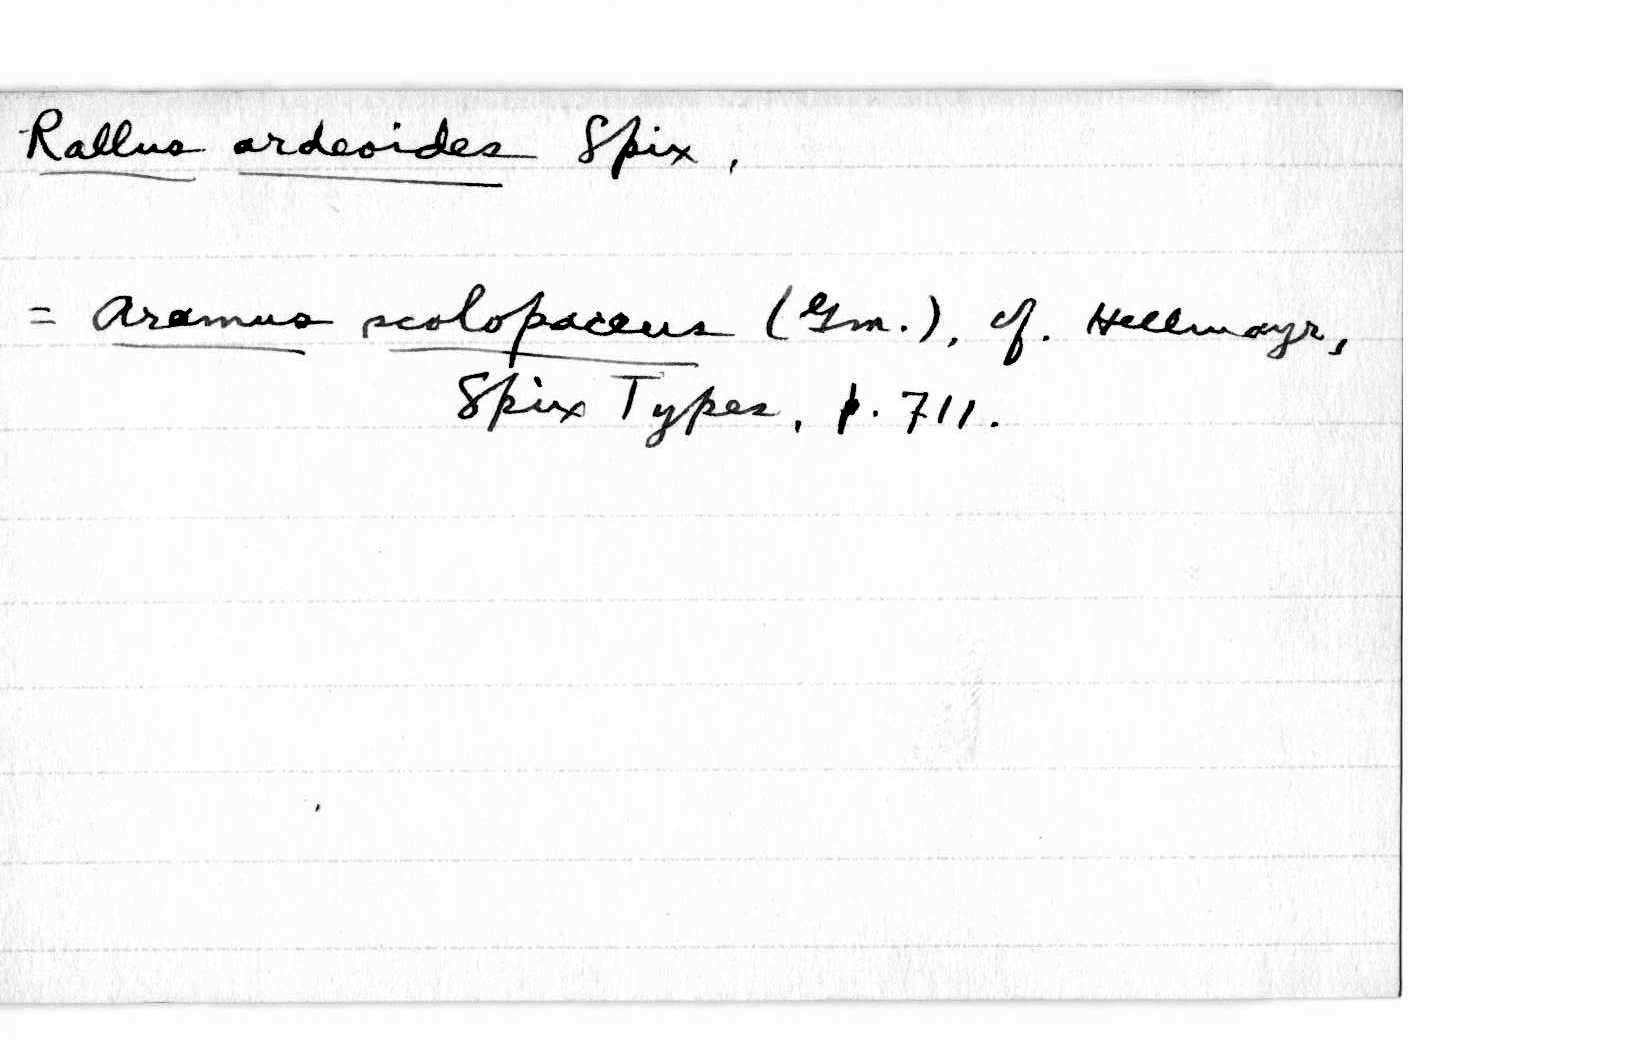 Rallus ardeoides Spix,
= Aramus scolopaceus (Gm.), cf. Hellmayr,
Spix Types, p. 711.